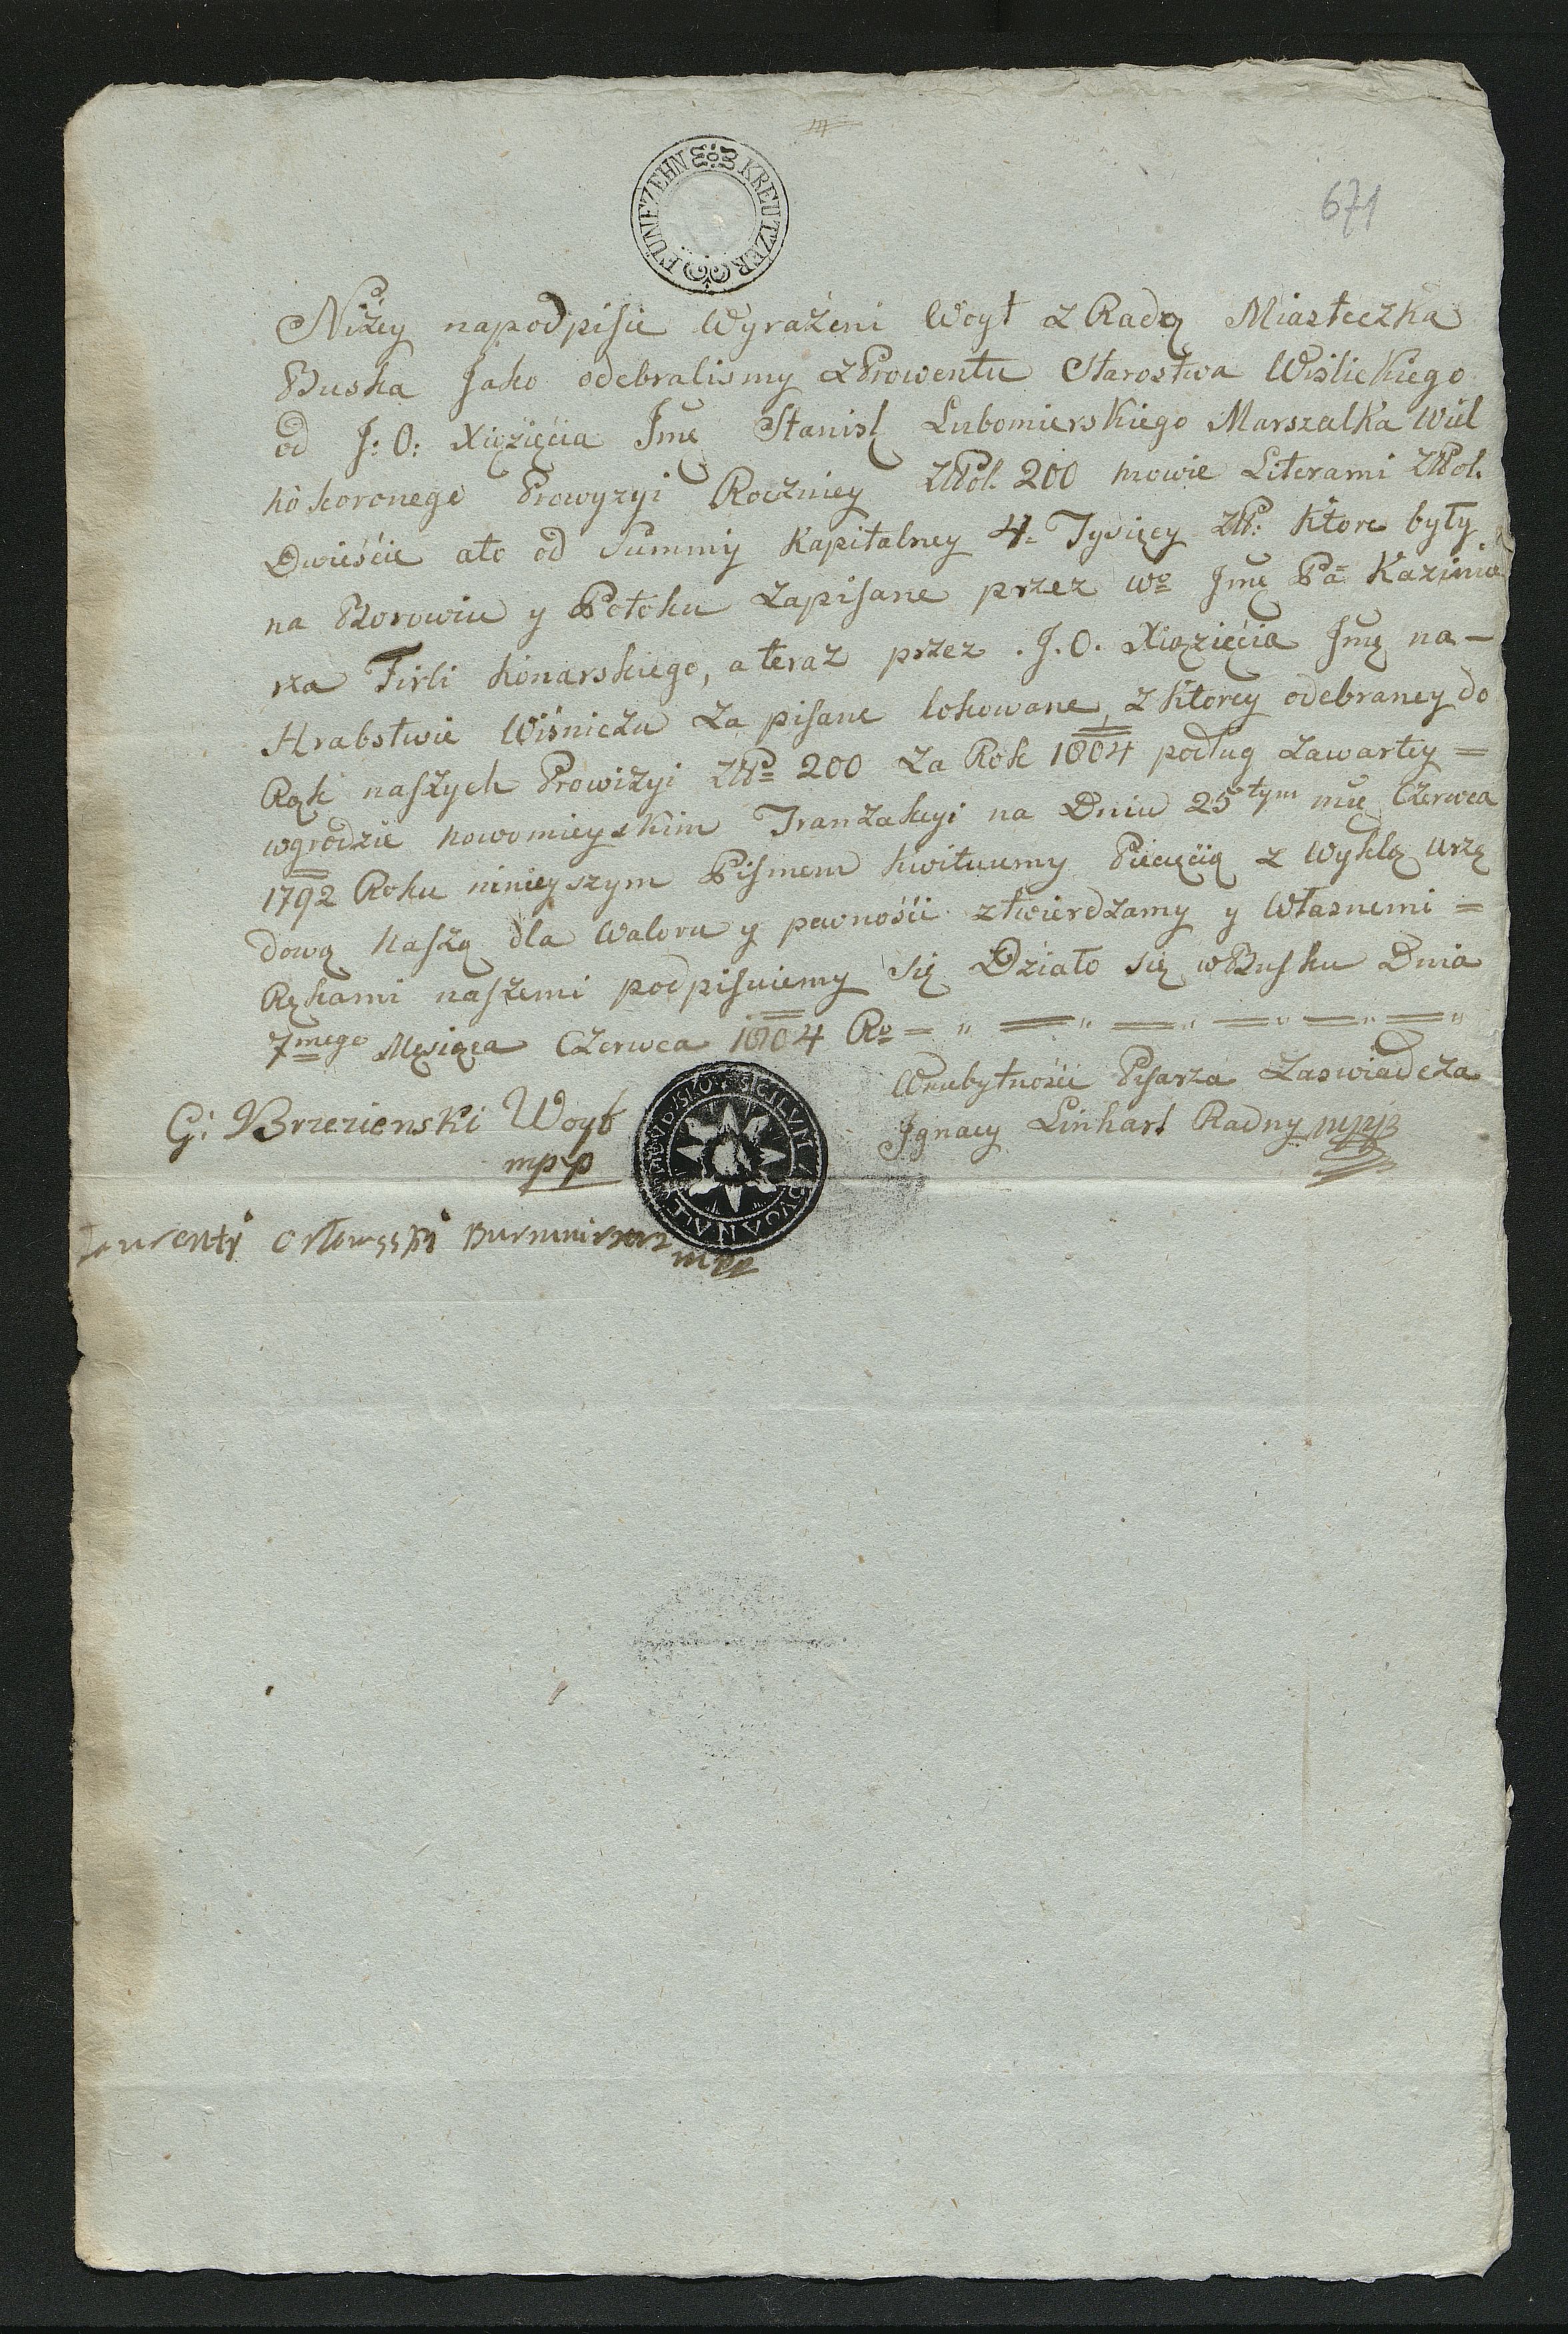 FUNFZEHN KREUTZER
671
Niżey napodpisie Wyrażeni Woyt z Radą Miasteczka
Buska Jako odebralismy z Prowentu Starostwa Wislickiego
od J: O: Xiązięcia Jmę Stanisł Lubomierskiego Marszałka Wiel
ko koronego Prowyzyi Roczniey ZłPol. 200 mowie Literami ZłPol.
Dwieście ato od Summy Kapitalney 4. Tysięcy ZłP: Ktore były
na Borowiu y Potoku zapisane przez Wo Jmę Pa Kazimie
rza Firli Konarskiego, a teraz przez J. O. Xiązięcia Jmę na-
Hrabstwie Wiśniczu za pisane lokowane, z Ktorey odebraney do
Rąk naszych Prowizyi ZłPo 200 za Rok 1804 podług zawartey =
wgrodzie nowomieyskim Tranzakcyi na Dniu 25tym mię Czerwca
1792 Roku ninieyszym Pismem kwituiemy Pieczęcią z Wykłą urzę
dową naszą dla Waloru y pewnośći ztwierdzamy y Własnemi =
Rękami naszemi podpisuiemy się Działo się w Busku Dnia
7mego Męsięca Czerwca 1804 Ro
Wniebytnośći Pisarza zaswiadcza
G: Brzezienski Woyt Jgnacy Linhart Radny mpp
mpp
Laurenti Orłowsski Burmirzerz mpp